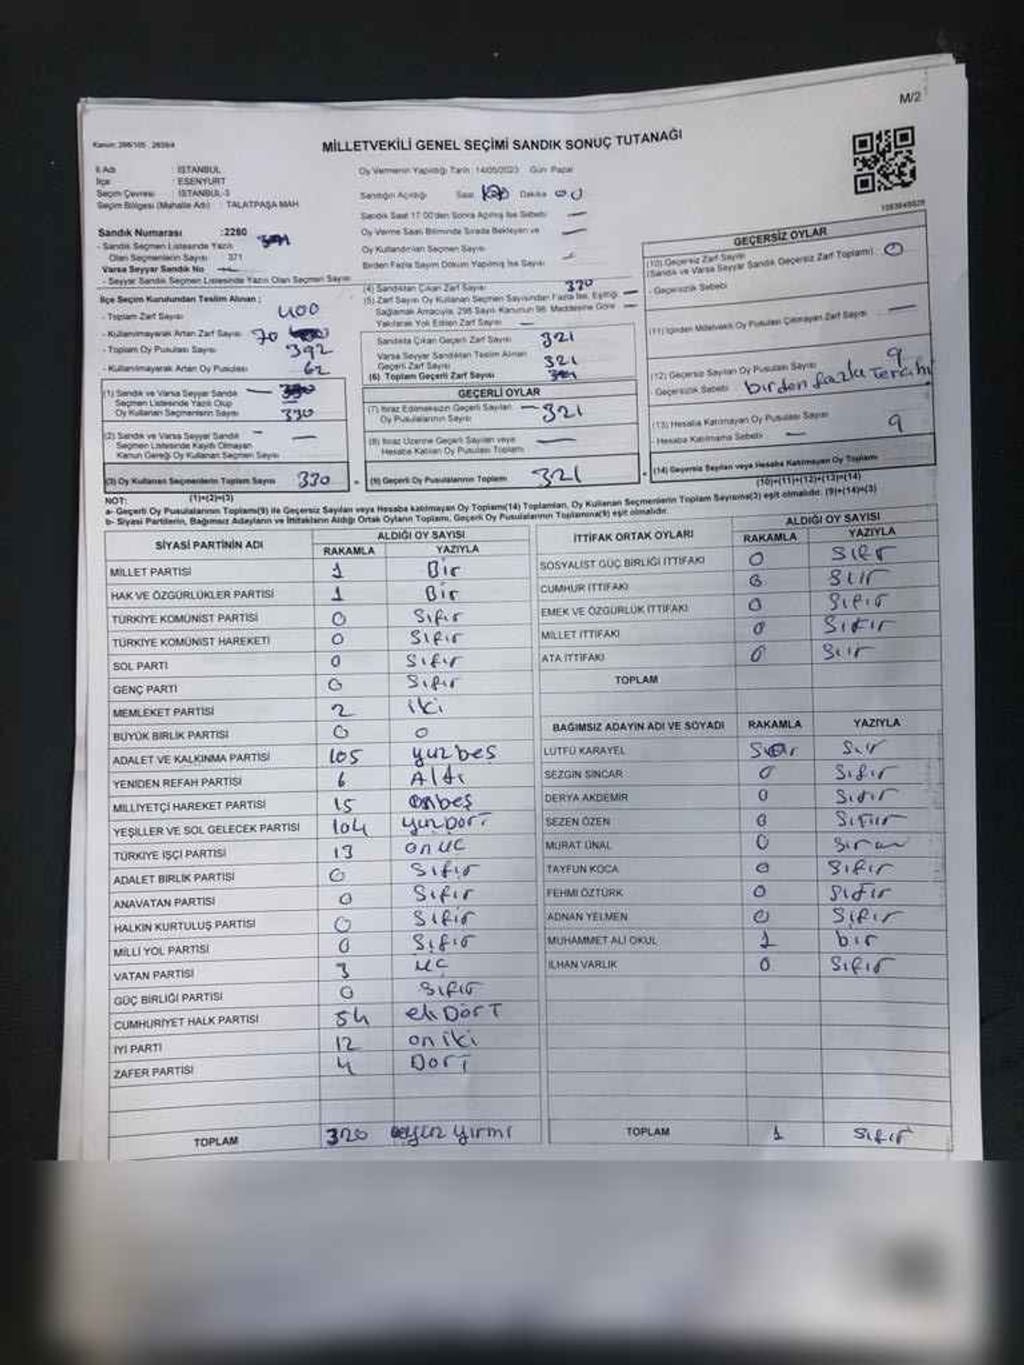 M/2
Kanun: 298/105
MİLLETVEKİLİ GENEL SEÇİMİ SANDIK SONUÇ TUTANAĞI
İl Adı : İSTANBUL
İlçe : ESENYURT
Seçim Çevresi : İSTANBUL-3
Seçim Bölgesi (Mahalle Adı) : TALATPAŞA MAH
Sandık Numarası :2280
- Sandık Seçmen Listesinde Yazılı
Olan Seçmenlerin Sayısı 371
Varsa Seyyar Sandık No —
- Seyyar Sandık Seçmen Listesinde Yazılı Olan Seçmen Sayısı
İlçe Seçim Kurulundan Teslim Alınan ;
- Toplam Zarf Sayısı 400
- Kullanılmayarak Artan Zarf Sayısı 70
- Toplam Oy Pusulası Sayısı 392
- Kullanılmayarak Artan Oy Pusulası 62
(1) Sandık ve Varsa Seyyar Sandık
Seçmen Listesinde Yazılı Olup
Oy Kullanan Seçmenlerin Sayısı 330
(2) Sandık ve Varsa Seyyar Sandık —
Seçmen Listesinde Kaydı Olmayan
Kanun Gereği Oy Kullanan Seçmen Sayısı
(3) Oy Kullanan Seçmenlerin Toplam Sayısı 330
(1)+(2)=(3)
Oy Vermenin Yapıldığı Tarih : 14/05/2023 Gün Pazar
Sandığın Açıldığı Saat Dakika
Sandık Saat 17.00'den Sonra Açılmış İse Sebebi —
Oy Verme Saati Bitiminde Sırada Bekleyen ve —
Oy Kullandırılan Seçmen Sayısı
Birden Fazla Sayım Döküm Yapılmış İse Sayısı
(4) Sandıktan Çıkan Zarf Sayısı 330
(5) Zarf Sayısı Oy Kullanan Seçmen Sayısından Fazla İse, Eşitliği —
Sağlamak Amacıyla, 298 Sayılı Kanunun 98. Maddesine Göre —
Yakılarak Yok Edilen Zarf Sayısı —
Sandıkta Çıkan Geçerli Zarf Sayısı 321
Varsa Seyyar Sandıktan Teslim Alınan
Geçerli Zarf Sayısı 321
(6) Toplam Geçerli Zarf Sayısı
GEÇERLİ OYLAR
(7) İtiraz Edilmeksizin Geçerli Sayılan
Oy Pusulalarının Sayısı — 321
(8) İtiraz Üzerine Geçerli Sayılan veya —
Hesaba Katılan Oy Pusulası Toplamı
(9) Geçerli Oy Pusulalarının Toplamı 321
GEÇERSİZ OYLAR
(10) Geçersiz Zarf Sayısı
(Sandık ve Varsa Seyyar Sandık Geçersiz Zarf Toplamı) 0
- Geçersizlik Sebebi
(11) İçinden Milletvekili Oy Pusulası Çıkmayan Zarf Sayısı —
(12) Geçersiz Sayılan Oy Pusulası Sayısı 9
- Geçersizlik Sebebi birden fazla Tercihi
(13) Hesaba Katılmayan Oy Pusulası Sayısı 9
- Hesaba Katılmama Sebebi —
(14) Geçersiz Sayılan veya Hesaba Katılmayan Oy Toplamı
(10)+(11)+(12)+(13)=(14)
NOT:
a- Geçerli Oy Pusulalarının Toplamı(9) ile Geçersiz Sayılan veya Hesaba katılmayan Oy Toplamı(14) Toplamları, Oy Kullanan Seçmenlerin Toplam Sayısına(3) eşit olmalıdır. (9)+(14)=(3)
b- Siyasi Partilerin, Bağımsız Adayların ve İttifakların Aldığı Ortak Oyların Toplamı, Geçerli Oy Pusulalarının Toplamına(9) eşit olmalıdır.
SİYASİ PARTİNİN ADI ALDIĞI OY SAYISI
RAKAMLA YAZIYLA
MİLLET PARTİSİ 1 Bir
HAK VE ÖZGÜRLÜKLER PARTİSİ 1 Bir
TÜRKİYE KOMÜNİST PARTİSİ 0 Sıfır
TÜRKİYE KOMÜNİST HAREKETİ 0 Sıfır
SOL PARTİ 0 Sıfır
GENÇ PARTİ 0 Sıfır
MEMLEKET PARTİSİ 2 iki
BÜYÜK BİRLİK PARTİSİ 0 0
ADALET VE KALKINMA PARTİSİ 105 yüzbeş
YENİDEN REFAH PARTİSİ 6 Altı
MİLLİYETÇİ HAREKET PARTİSİ 15 onbeş
YEŞİLLER VE SOL GELECEK PARTİSİ 104 yüzDört
TÜRKİYE İŞÇİ PARTİSİ 13 onüç
ADALET BİRLİK PARTİSİ 0 Sıfır
ANAVATAN PARTİSİ 0 Sıfır
HALKIN KURTULUŞ PARTİSİ 0 Sıfır
MİLLİ YOL PARTİSİ 0 Sıfır
VATAN PARTİSİ 3 üç
GÜÇ BİRLİĞİ PARTİSİ 0 Sıfır
CUMHURİYET HALK PARTİSİ 54 eliDört
İYİ PARTİ 12 oniki
ZAFER PARTİSİ 4 Dört
TOPLAM 320 üçyüz yirmi
İTTİFAK ORTAK OYLARI ALDIĞI OY SAYISI
RAKAMLA YAZIYLA
SOSYALİST GÜÇ BİRLİĞİ İTTİFAKI 0 Sıfır
CUMHUR İTTİFAKI 0 Sıfır
EMEK VE ÖZGÜRLÜK İTTİFAKI 0 Sıfır
MİLLET İTTİFAKI 0 Sıfır
ATA İTTİFAKI 0 Sıfır
TOPLAM
BAĞIMSIZ ADAYIN ADI VE SOYADI RAKAMLA YAZIYLA
LÜTFÜ KARAYEL Sıfır
SEZGİN SİNCAR 0 Sıfır
DERYA AKDEMİR 0 Sıfır
SEZEN ÖZEN 0 Sıfır
MURAT ÜNAL 0
TAYFUN KOCA 0 Sıfır
FEHMİ ÖZTÜRK 0 Sıfır
ADNAN YELMEN 0 Sıfır
MUHAMMET ALİ OKUL 1 bir
İLHAN VARLIK 0 Sıfır
TOPLAM 1 Sıfır